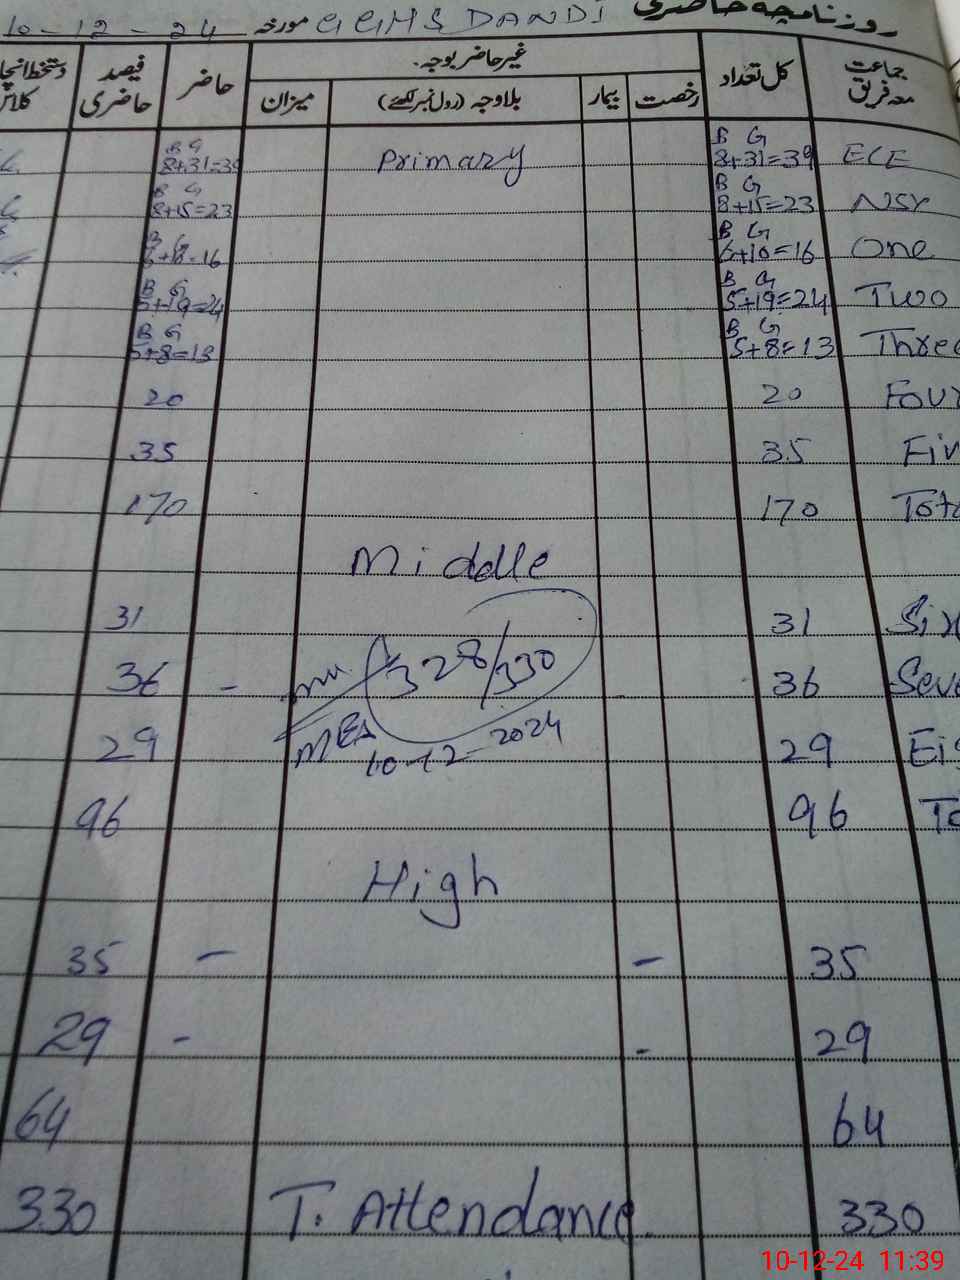 روزنامچہ حاضری GGHS DANDI مورخہ 10-12-24
جماعت معہ فریق کل تعداد غیر حاضر بوجہ۔ حاضر فیصد حاضری دستخط انچا
رخصت بیمار بلاوجہ (رول نمبر لکھئے) میزان کلاس
B G B G
ECE 8+31=39 Primary 8+31=39
B G B G
NSY 8+15=23 8+15=23
B G B G
One 6+10=16
B G B G
Two 5+19=24 5+19=24
B G B G
Three 5+8=13 5+8=13
Four 20 20
Fiv 35 35
Tota 170 170
Middle
Six 31 31
328/330
Seve 36 - 36
MEA
10-12-2024
Eig 29 29
To 96 96
High
35 - - 35
29 - - 29
64 64
330 T. Attendance 330
10-12-24 11:39